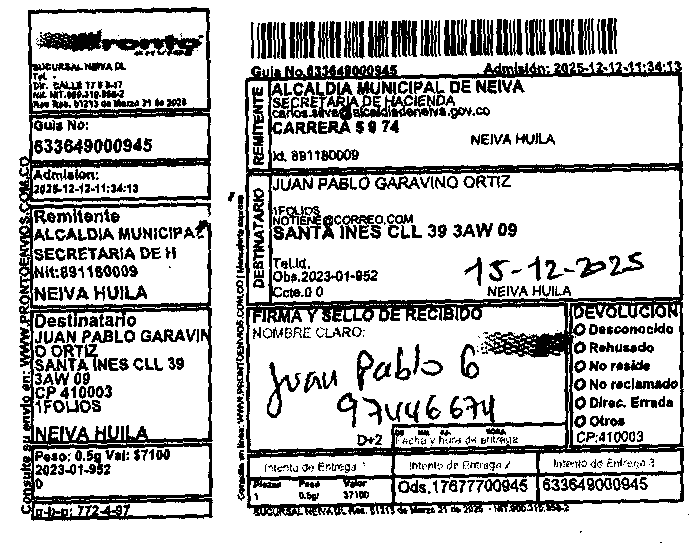 Pronto
ENVIOS
SUCURSAL NEIVA DL
Tel. -
Dir. CALLE 17 # 8-17
Guia No:
633649000945
Admision:
2025-12-12-11:34:13
Remitente
ALCALDIA MUNICIPAL
SECRETARIA DE H
Nit:891180009
NEIVA HUILA
Destinatario
JUAN PABLO GARAVIN
O ORTIZ
SANTA INES CLL 39
3AW 09
CP 410003
1FOLIOS
NEIVA HUILA
Peso: 0.5g Val: $7100
2023-01-952
0
g-b-p: 772-4-97
Consulte su envio en: WWW.PRONTOENVIOS.COM.CO
Guia No.633649000945 Admisión: 2025-12-12-11:34:13
REMITENTE
ALCALDIA MUNICIPAL DE NEIVA
SECRETARIA DE HACIENDA
carlos.silva@alcaldianeiva.gov.co
CARRERA 5 9 74
NEIVA HUILA
Id. 891180009
DESTINATARIO
JUAN PABLO GARAVINO ORTIZ
1FOLIOS
NOTIENE@CORREO.COM
SANTA INES CLL 39 3AW 09
Tel.Id.
Obs.2023-01-952
Ccte.0 0
15-12-2025
NEIVA HUILA
FIRMA Y SELLO DE RECIBIDO
NOMBRE CLARO:
Juan Pablo G
97446674
D+2
Fecha y hora de entrega
DEVOLUCION
O Desconocido
O Rehusado
O No reside
O No reclamado
O Direc. Errada
O Otros
CP:410003
Intento de Entrega 1 Intento de Entrega 2 Intento de Entrega 3
Piezas Peso Valor
1 0.5gr $7100
Ods.17677700945 633649000945